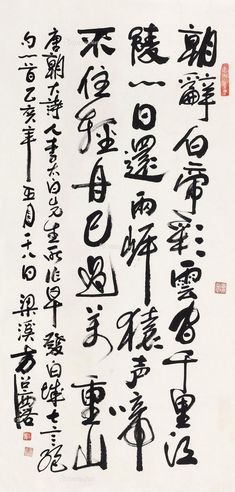 朝辭白帝彩雲間千里江
陵一日還兩岸猿声啼
不住輕舟已過萬重山
唐朝大詩人李太白先生所作早發白帝城七言絕
句一首乙亥年五月十八日梁溪方